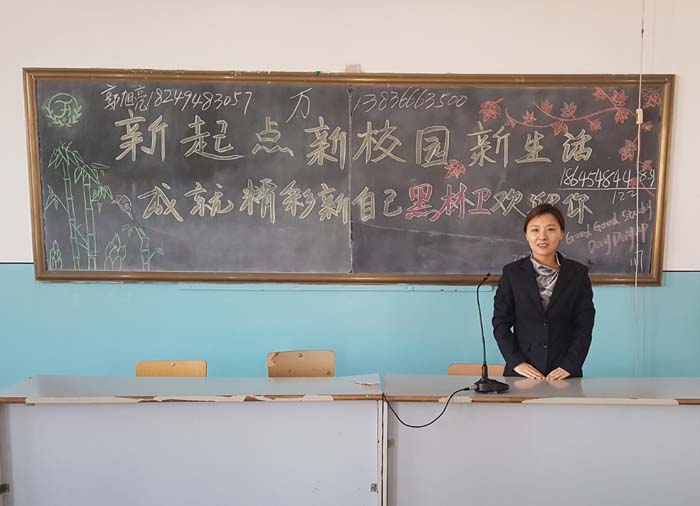 郭旭亮18249483057 万 13836663500
新起点新校园新生活
18645484489
122
成就精彩新自己黑林卫欢迎你
Good Good Study
Day Day up